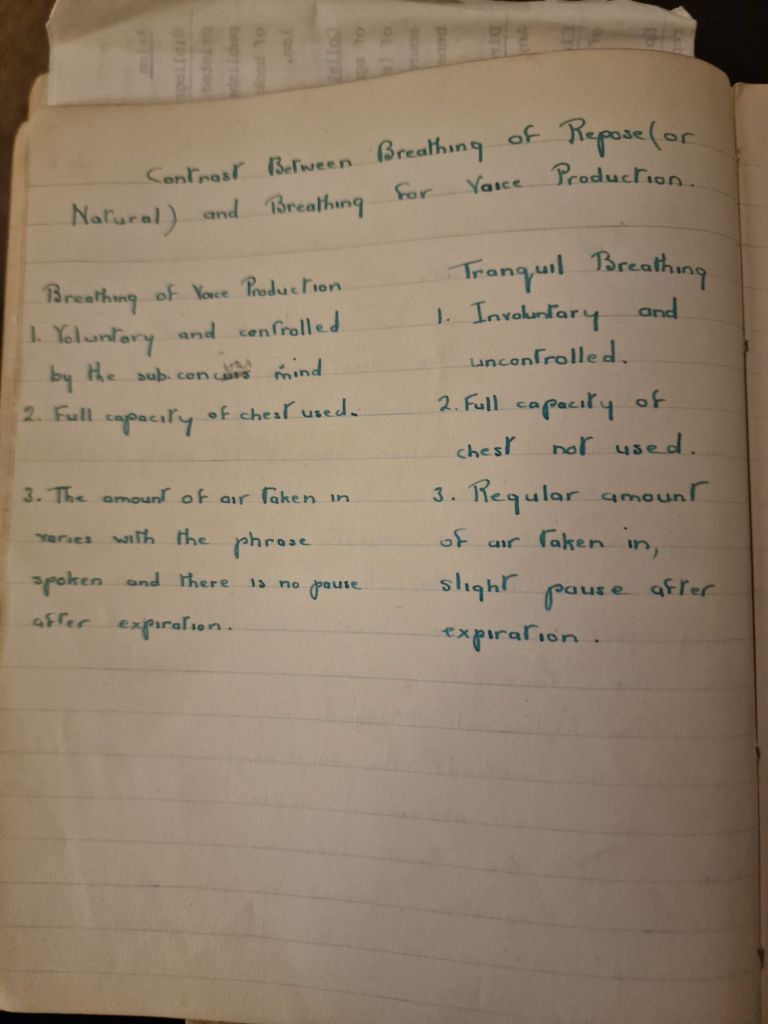 Contrast Between Breathing of Repose (or
Natural) and Breathing for Voice Production.
Breathing of Voice Production
1. Voluntary and controlled
by the sub. concious mind
2. Full capacity of chest used.
3. The amount of air taken in
varies with the phrase
spoken and there is no pause
after expiration.
Tranquil Breathing
1. Involuntary and
uncontrolled.
2. Full capacity of
chest not used.
3. Regular amount
of air taken in,
slight pause after
expiration.